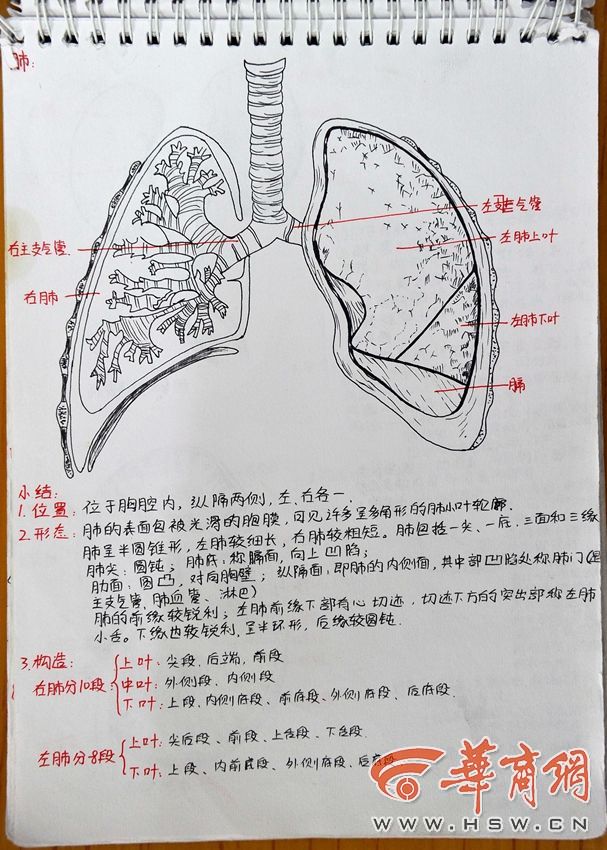 肺:
左主支气管
右主支气管
左肺上叶
右肺
左肺下叶
膈
小结:
1.位置:位于胸腔内,纵隔两侧,左、右各一.
2.形态:肺的表面包被光滑的胸膜,可见许多呈多角形的肺小叶轮廓.
肺呈半圆锥形,左肺较细长,右肺较粗短。肺包括一尖、一底、三面和三缘
肺尖:圆钝;肺底:称膈面,向上凹陷;
肋面:圆凸,对向胸壁;纵隔面:即肺的内侧面,其中部凹陷处称肺门(
主支气管、肺血管、淋巴)
肺的前缘较锐利;左肺前缘下部有心切迹,切迹下方的突出部称左肺
小舌。下缘也较锐利,呈半环形,后缘较圆钝.
3.构造:
右肺分10段:
上叶:尖段,后端,前段
中叶:外侧段、内侧段
下叶:上段、内侧底段、前底段、外侧底段、后底段.
左肺分8段
上叶:尖后段、前段、上舌段、下舌段.
下叶:上段、内前底段、外侧底段、后底段
華商網
WWW.HSW.CN